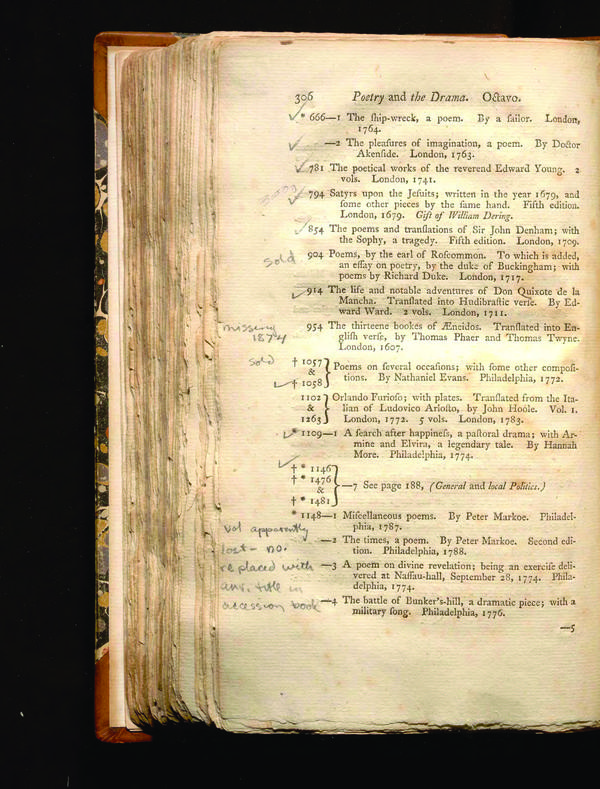 306 Poetry and the Drama. Octavo.
* 666—1 The ſhip-wreck, a poem. By a ſailor. London,
1764.
—2 The pleaſures of imagination, a poem. By Doctor
Akenſide. London, 1763.
781 The poetical works of the reverend Edward Young. 2
vols. London, 1741.
794 Satyrs upon the Jeſuits; written in the year 1679, and
ſome other pieces by the ſame hand. Fifth edition.
London, 1679. Gift of William Dering.
854 The poems and tranſlations of Sir John Denham; with
the Sophy, a tragedy. Fifth edition. London, 1709.
sold 904 Poems, by the earl of Roſcommon. To which is added,
an eſſay on poetry, by the duke of Buckingham; with
poems by Richard Duke. London, 1717.
914 The life and notable adventures of Don Quixote de la
Mancha. Tranſlated into Hudibraſtic verſe. By Ed-
ward Ward. 2 vols. London, 1711.
missing 954 The thirteene bookes of Æneidos. Tranſlated into En-
1874 gliſh verſe, by Thomas Phaer and Thomas Twyne.
London, 1607.
sold † 1057
& Poems on ſeveral occaſions; with ſome other compoſi-
† 1058 tions. By Nathaniel Evans. Philadelphia, 1772.
1102 Orlando Furioſo; with plates. Tranſlated from the Ita-
& lian of Ludovico Arioſto, by John Hoole. Vol. 1.
1263 London, 1772. 5 vols. London, 1783.
* 1109—1 A ſearch after happineſs, a paſtoral drama; with Ar-
mine and Elvira, a legendary tale. By Hannah
More. Philadelphia, 1774.
† * 1146
† * 1476
& —7 See page 188, (General and local Politics.)
† * 1481
* 1148—1 Miſcellaneous poems. By Peter Markoe. Philadel-
phia, 1787.
vol apparently
lost — no. —2 The times, a poem. By Peter Markoe. Second edi-
tion. Philadelphia, 1788.
replaced with —3 A poem on divine revelation; being an exerciſe deli-
vered at Naſſau-hall, September 28, 1774. Phila-
title in delphia, 1774.
accession book —4 The battle of Bunker's-hill, a dramatic piece; with a
military ſong. Philadelphia, 1776.
—5